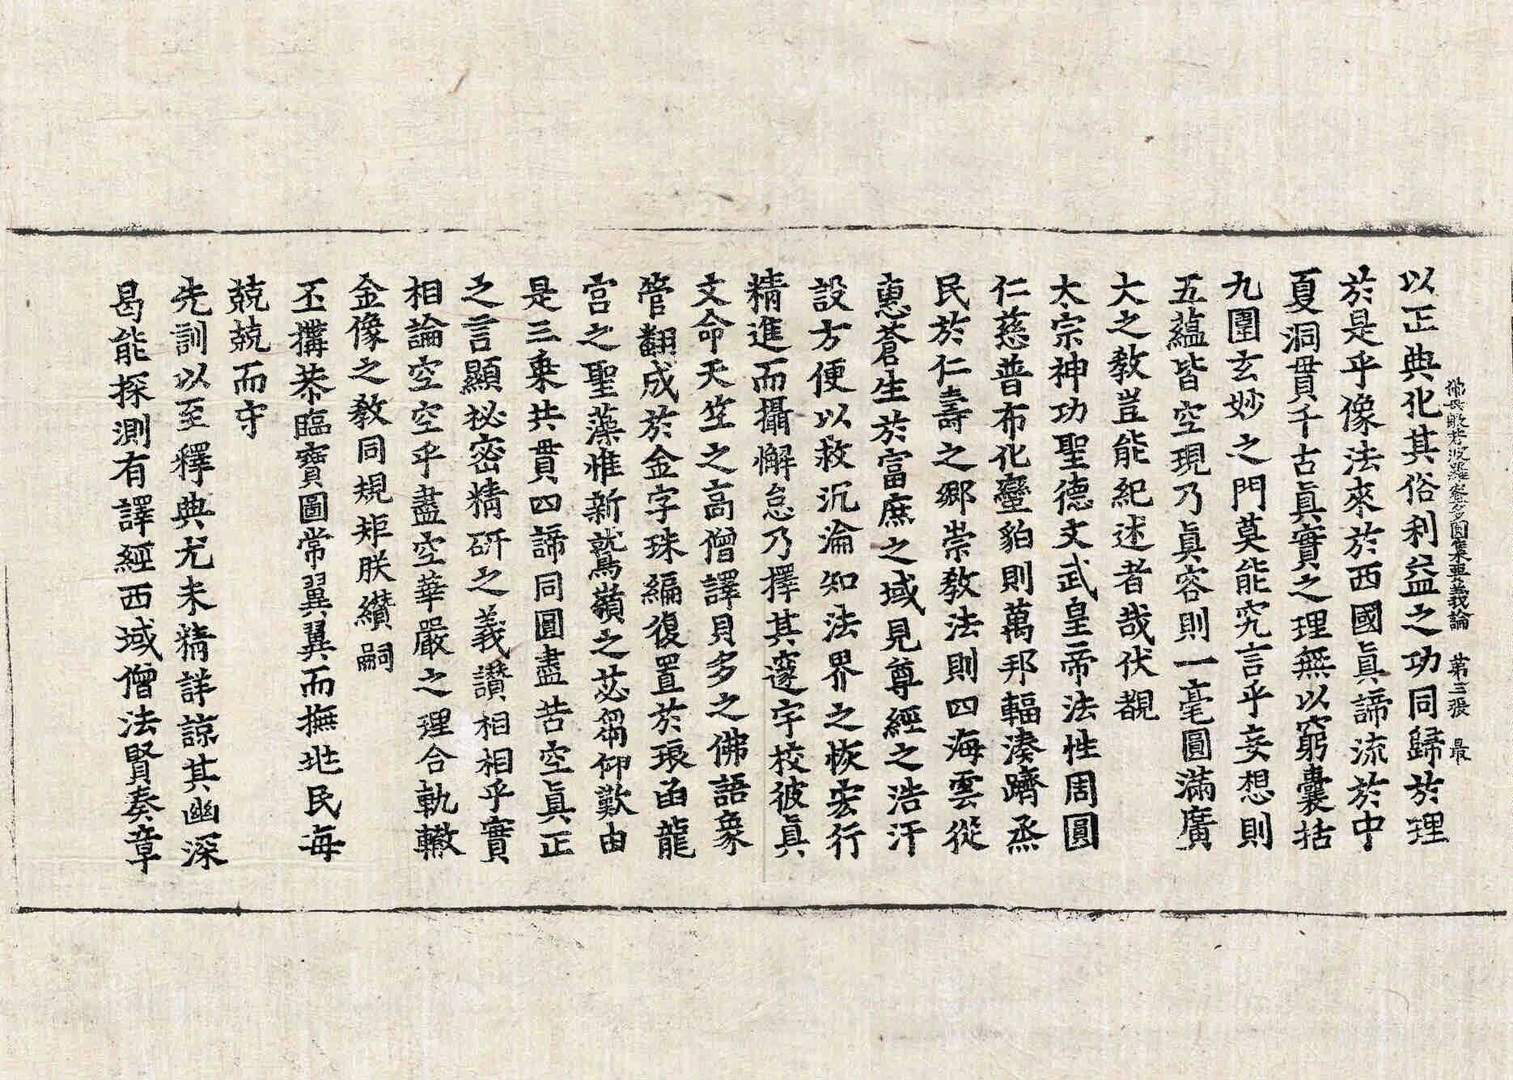 佛母般若波羅蜜多圓集要義論　第三張　最
以正典化其俗利益之功同歸於理
於是乎像法來於西國真諦流於中
夏洞貫千古真實之理無以窮囊括
九圍玄妙之門莫能究言乎妄想則
五蘊皆空現乃真容則一毫圓滿廣
大之教豈能紀述者哉伏覩
太宗神功聖德文武皇帝法性周圓
仁慈普布化蠻貊則萬邦輻湊躋烝
民於仁壽之鄉崇教法則四海雲從
惠蒼生於富庶之域見尊經之浩汗
設方便以救沉淪知法界之恢宏行
精進而攝懈怠乃擇其邃宇校彼真
文命天竺之高僧譯貝多之佛語象
管翻成於金字珠編復置於琅函龍
宮之聖藻惟新鷲嶺之苾蒭仰歎由
是三乘共貫四諦同圓盡苦空真正
之言顯祕密精研之義讚相相乎實
相論空空乎盡空華嚴之理合軌轍
金像之教同規矩朕纘嗣
丕搆恭臨寶圖常翼翼而撫地民每
兢兢而守
先訓以至釋典尤未精詳諒其幽深
曷能探測有譯經西域僧法賢奏章